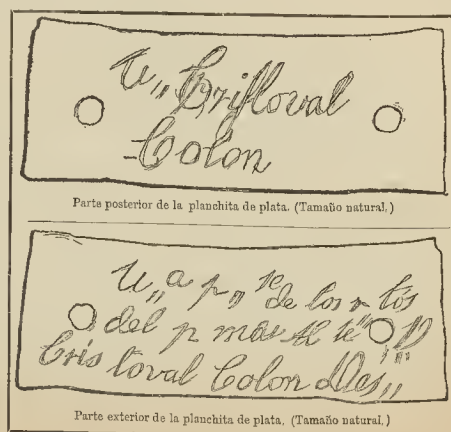 U,, Cristoval
Colon
Parte posterior de la planchita de plata. (Tamaño natural.)
U,, a p,, te de los r tos
del p mer Al te D
Cristoval Colon Des,,
Parte exterior de la planchita de plata. (Tamaño natural.)